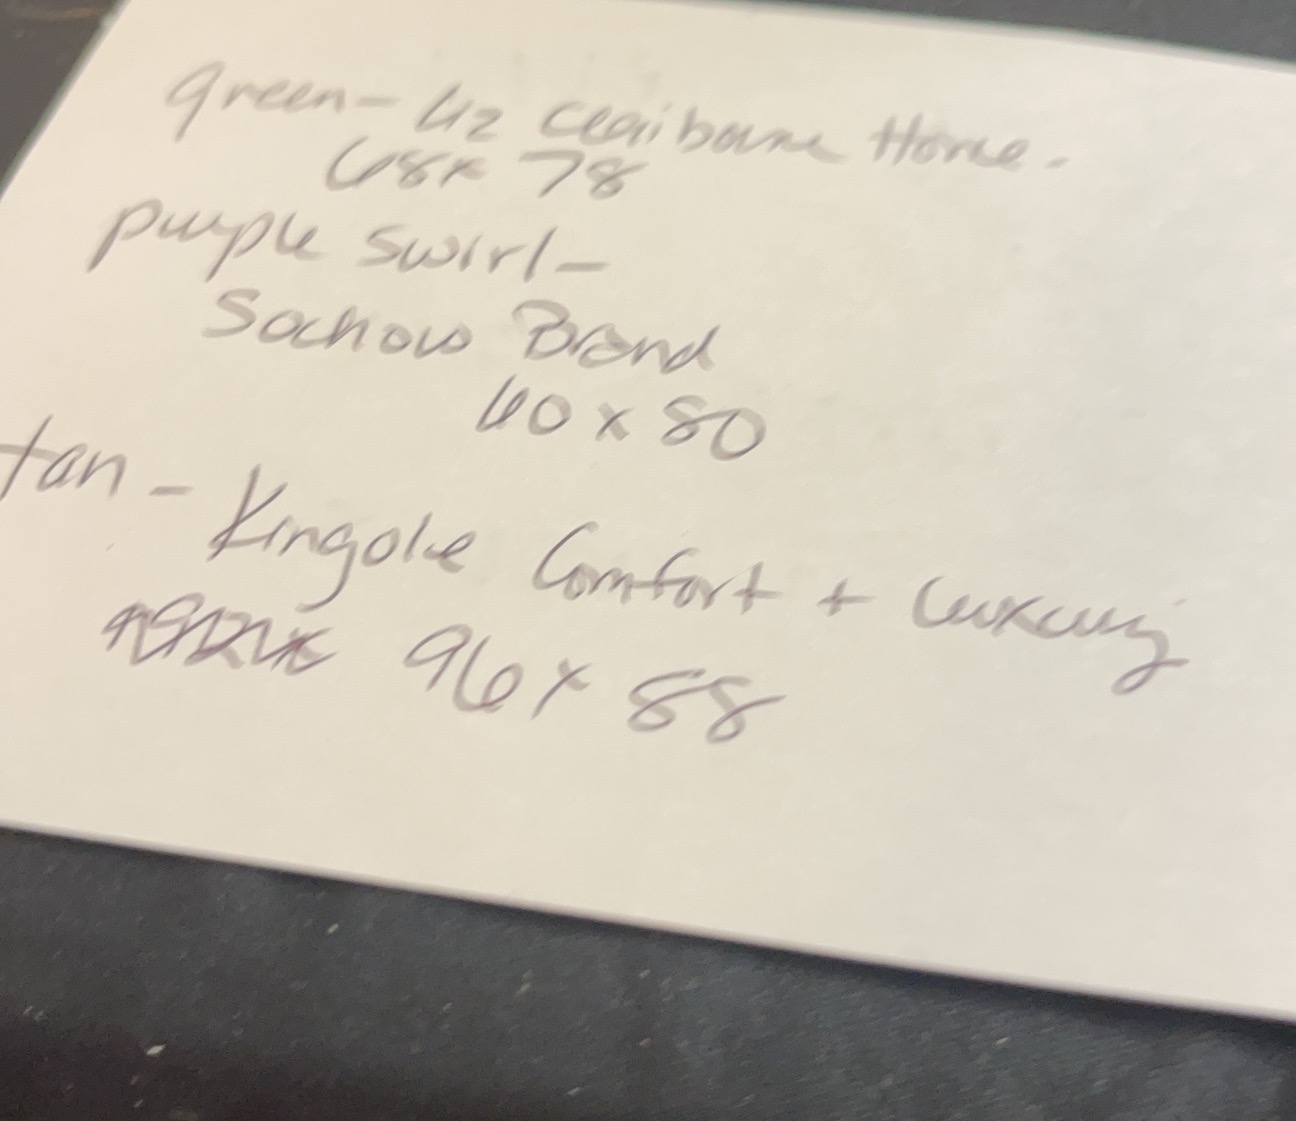 green - Liz Claiborne Home.
68x 78
purple swirl -
Sochow Brand
60 x 80
tan - Kingole Comfort + Luxury
96 x 88